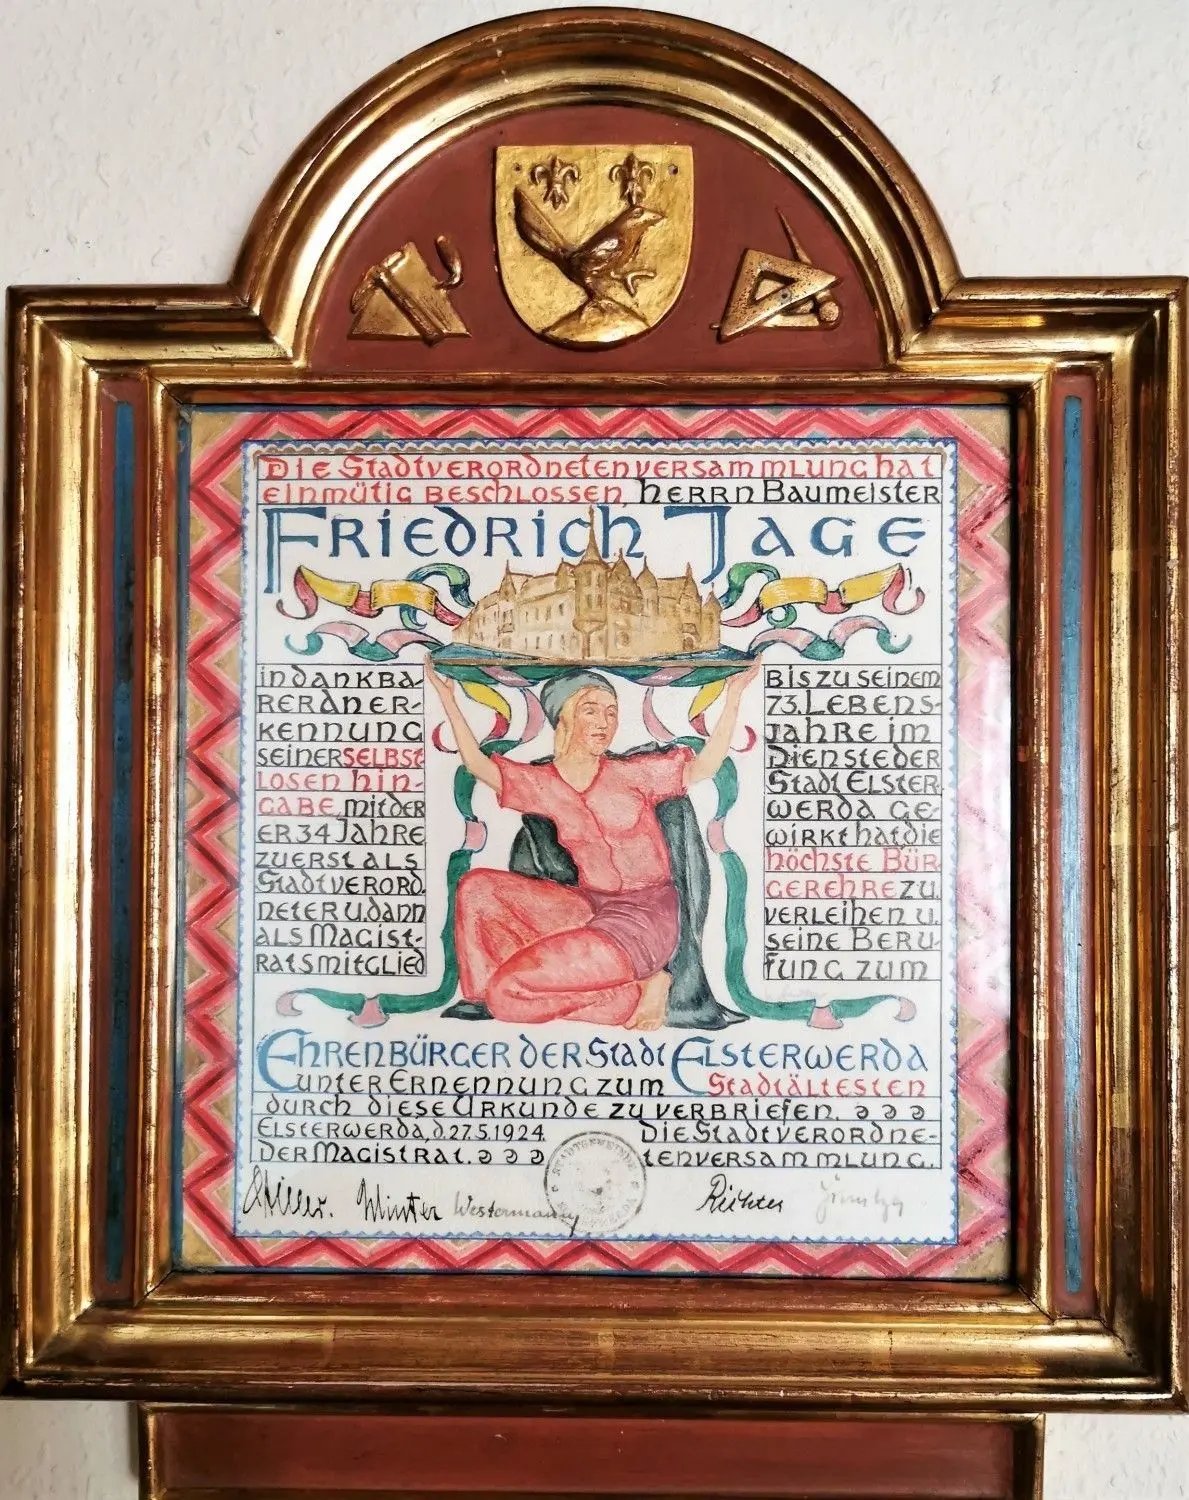 Die Stadtverordnetenversammlung hat
einmütig beschlossen, Herrn Baumeister
Friedrich Jage
in dankba-
rer Aner-
kennung
seiner selbst
losen Hin-
gabe, mit der
er 34 Jahre
zuerst als
Stadtverord.
neter u. dann
als Magist-
ratsmitglied
bis zu seinem
73. Lebens-
jahre im
Dienste der
Stadt Elster
werda ge-
wirkt hat, die
höchste Bür
gerehre zu
verleihen u.
seine Beru-
fung zum
Ehrenbürger der Stadt Elsterwerda
unter Ernennung zum Stadtältesten
durch diese Urkunde zu verbriefen.
Elsterwerda, d. 27.5.1924. Die Stadtverordne-
der Magistrat. tenversammlung.
Winter Westermann Richter